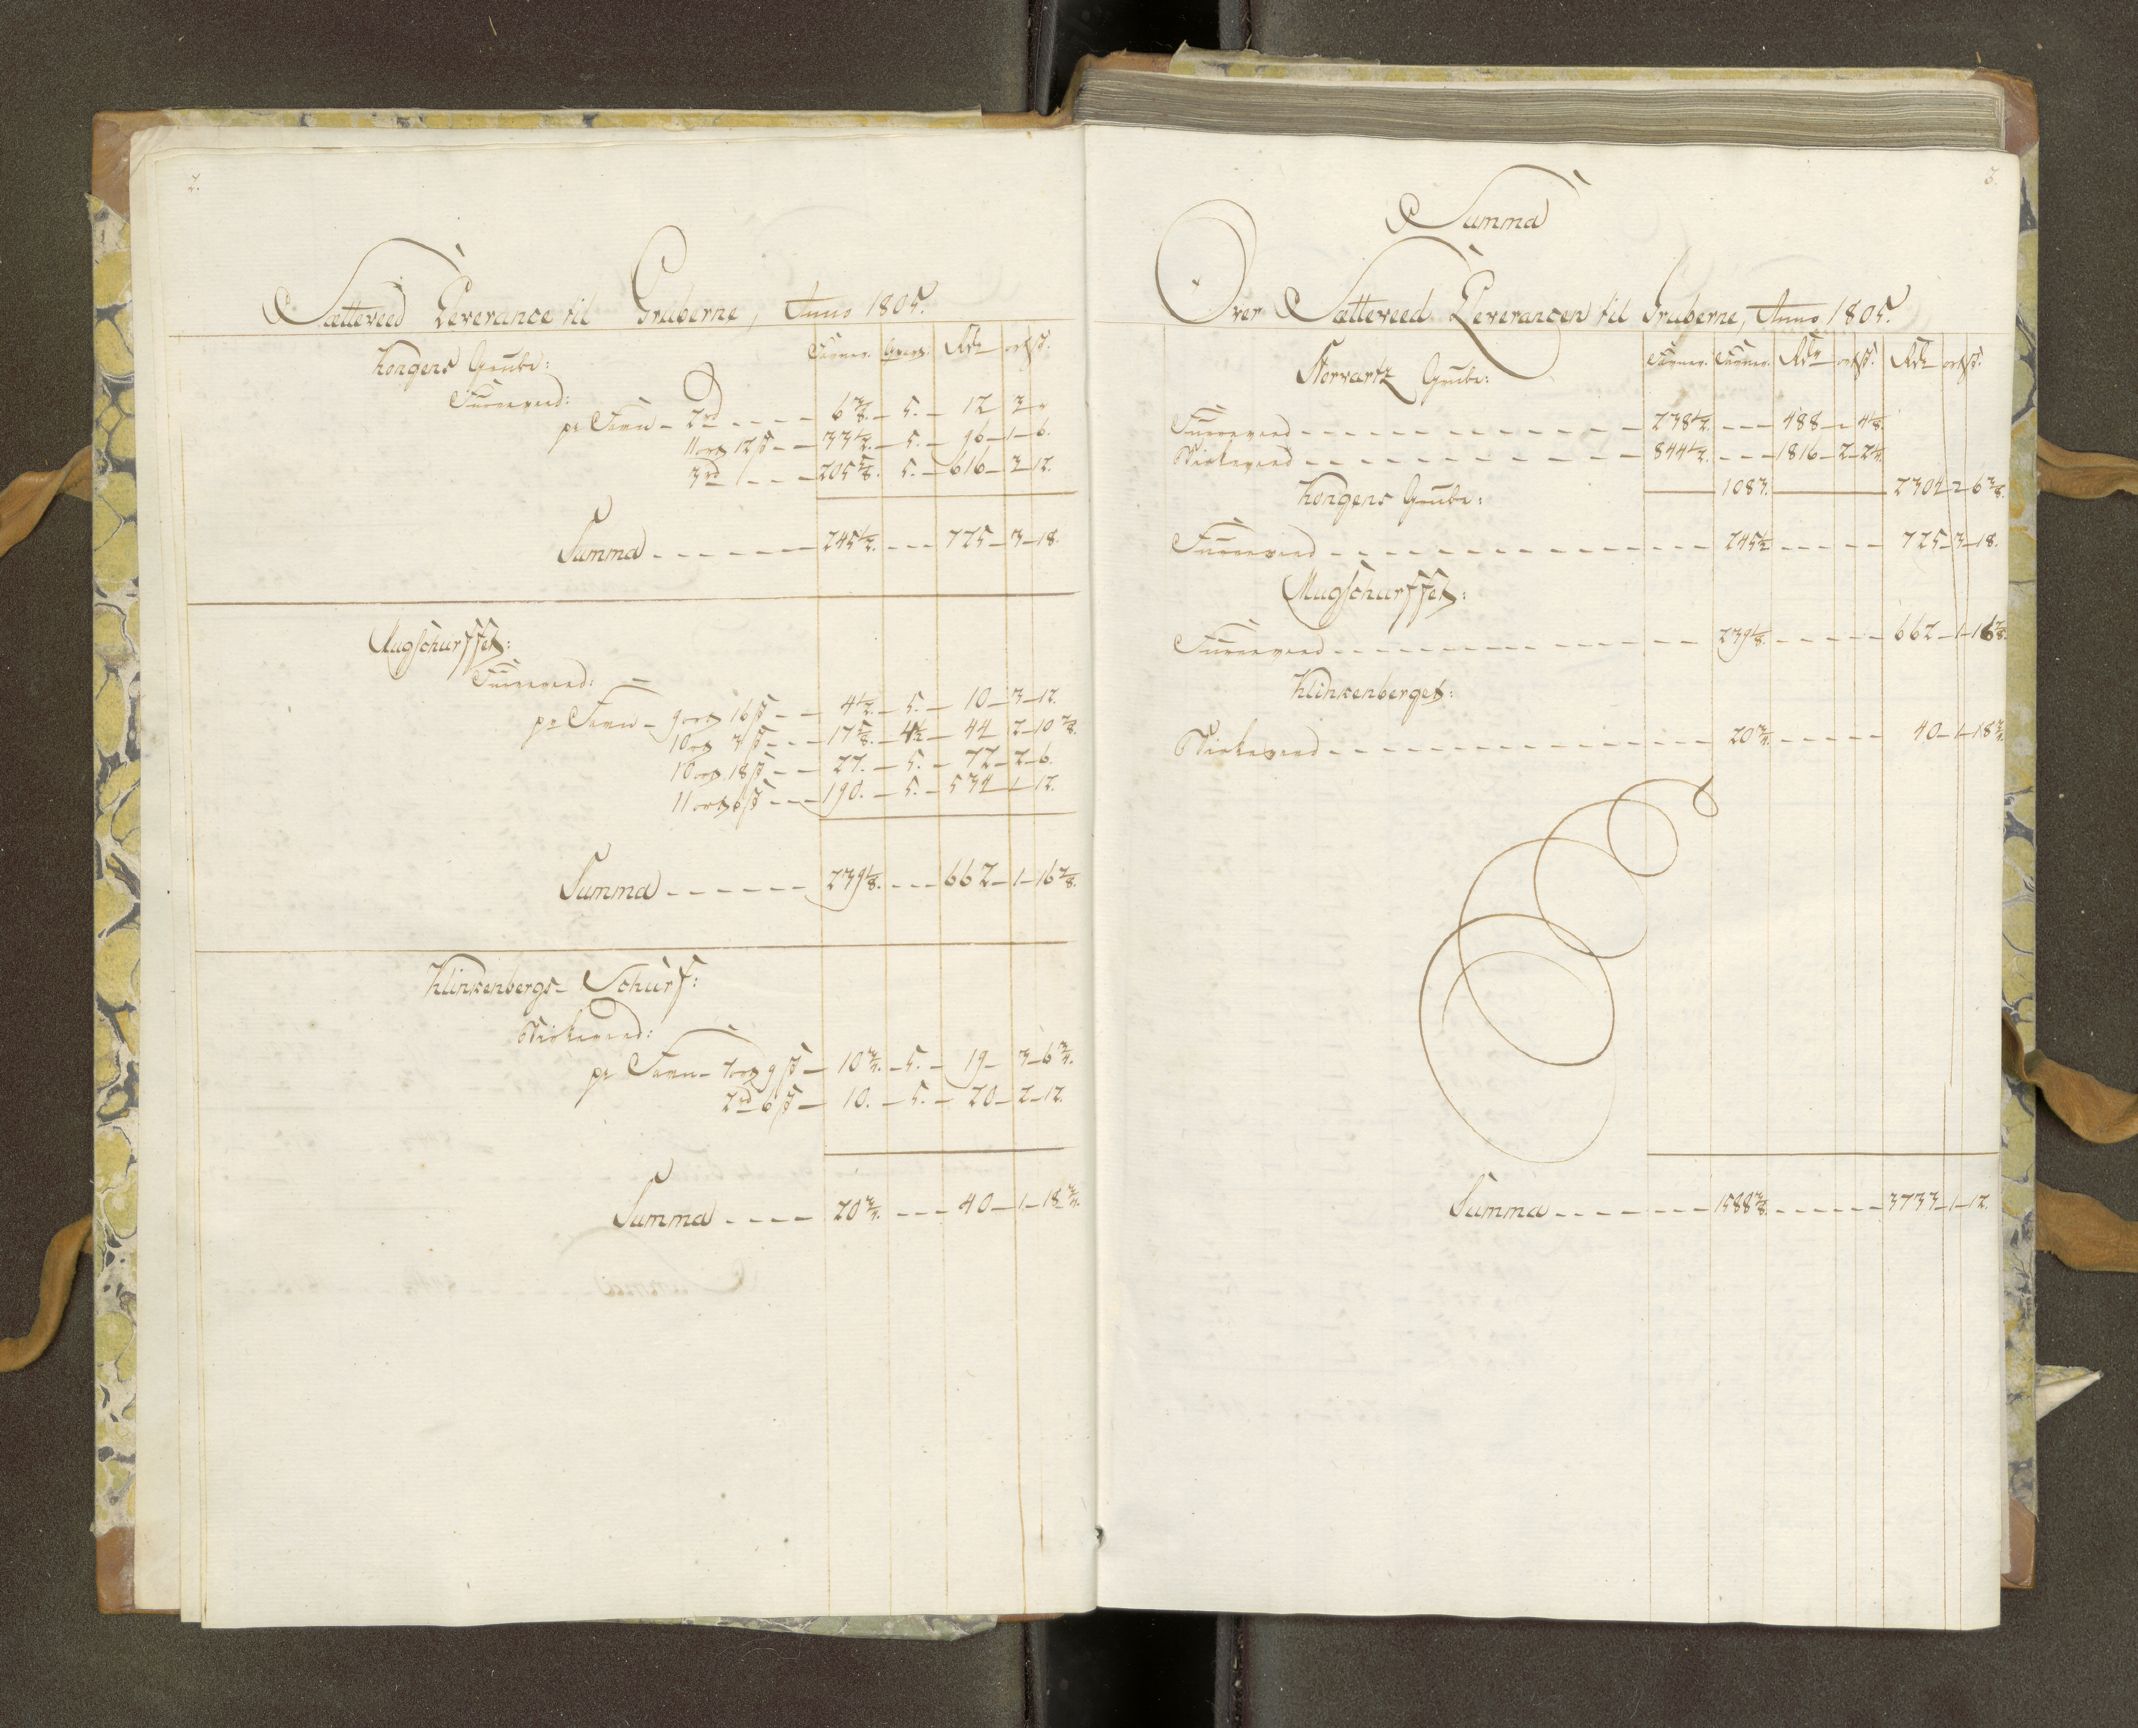 2.
Sætteveed Leverance til Gruberne, Anno 1805.
Favner. Qvart. Rdr ort ß.
Kongens Grube:
Furreveed:
pr Favn - 2rd - - - - 6 3/8. - 5. - 12 3 -
11 ort 12 ß - - 33 1/2. - 5. - 96 - 1 - 6.
3rd - - - 205 5/8. 5. - 616 - 3 - 12.
Summa - - - - - - 245 1/2. - - - 725 - 3 - 18.
Mugschurffet:
Furreveed:
pr Favn - 9 ort 16 ß - - 4 1/2. - 5. - 10 - 3 - 12.
10 ort 3 ß - - - 17 5/8. - 4 1/2 - 44 2 - 10 7/8.
10 ort 18 ß - - 27. - 5. - 72 - 2 - 6.
11 ort 6 ß - - - 190. - 5. - 534 - 1 - 12.
Summa - - - - - - 239 1/8. - - - 662 - 1 - 16 7/8.
Klinkenbergs - Schurf:
Birkeveed:
pr Favn - 7 ort 9 ß - 10 3/4. - 5. - 19 - 3 - 6 3/4.
2rd 6 ß - 10. - 5. - 20 - 2 - 12.
Summa - - - - 20 3/4. - - - 40 - 1 - 18 3/4.
3.
Summa
Over Sætteveed Leverancen til Gruberne, Anno 1805.
Favner. Favner. Rdr ort ß. Rdr ort ß.
Storvartz Grube:
Furreveed - - - - - - - - - - - 238 1/2. - - - 488 - - 4 1/8.
Birkeveed - - - - - - - - - - - 844 1/2. - - - 1816 - 2 - 2 1/4.
1083. 2304 - 2 - 6 3/8.
Kongens Grube:
Furreveed - - - - - - - - - - - - 245 1/2 - - - - - 725 - 3 - 18.
Mugschurffet:
Furreveed - - - - - - - - - - - - 239 1/8. - - - - - 662 - 1 - 16 7/8.
Klinkenberget:
Birkeveed - - - - - - - - - - - - 20 3/4. - - - - - 40 - 1 - 18 3/4.
Summa - - - - - - 1588 3/8. - - - - - 3733 - 1 - 12.